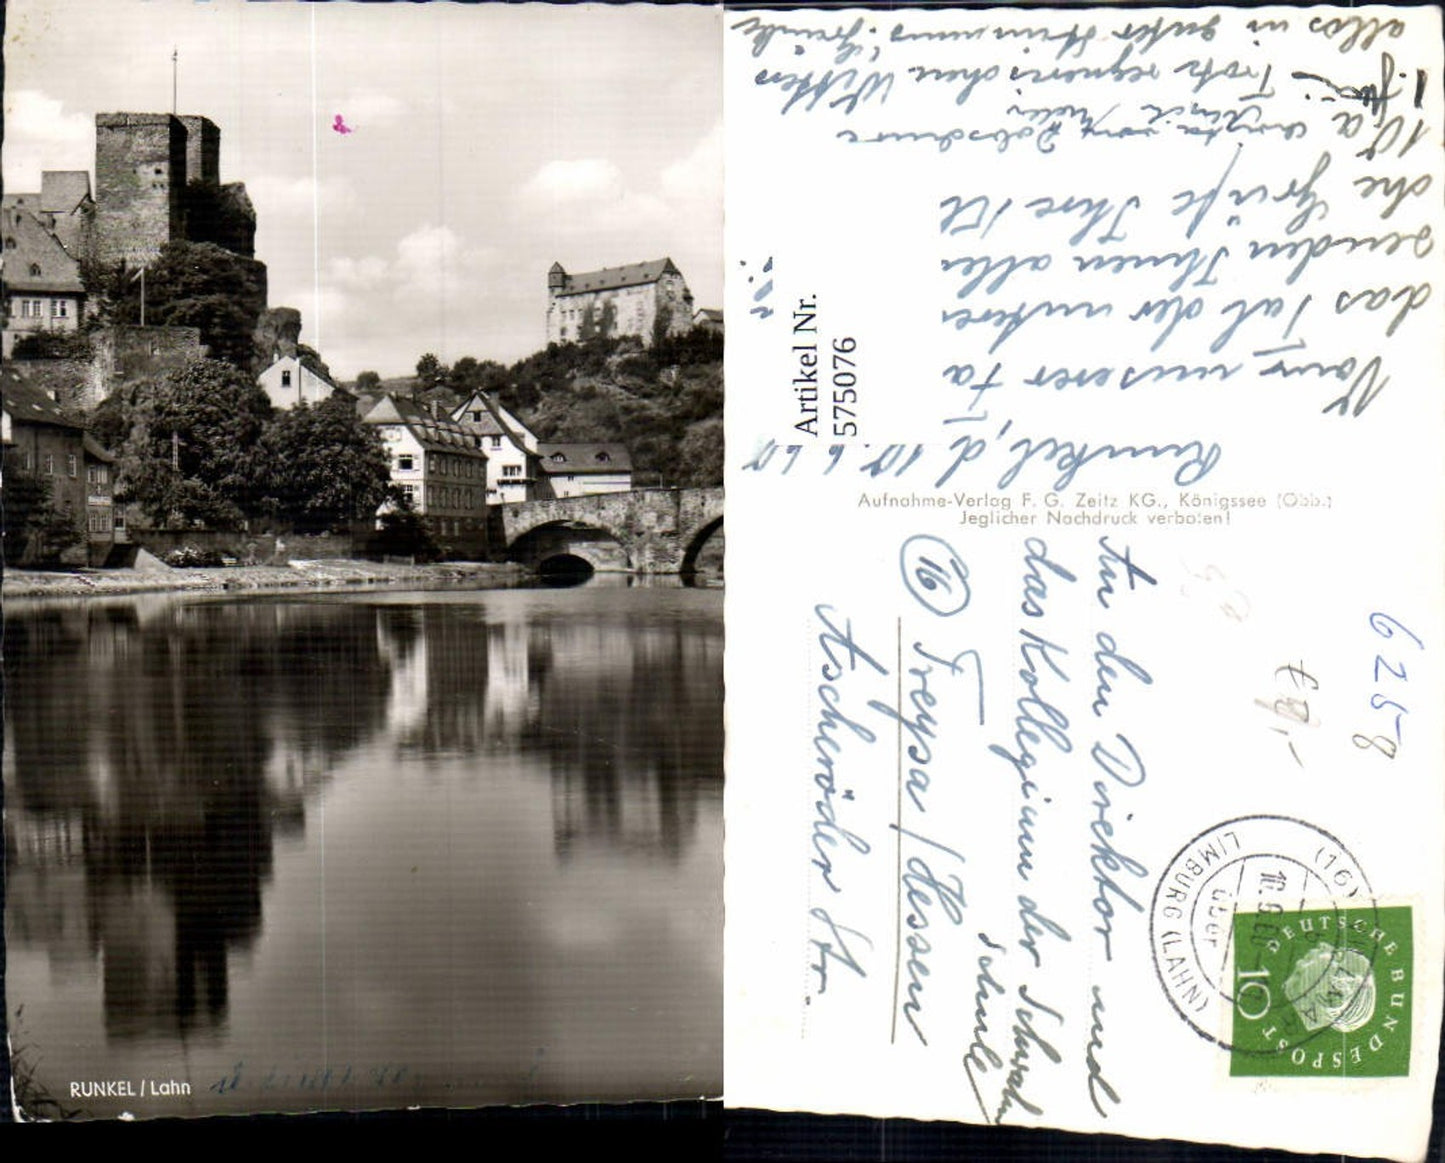 RUNKEL / Lahn
Artikel Nr.
575076
Aufnahme-Verlag F. G. Zeitz KG., Königssee (Obb.)
Jeglicher Nachdruck verboten!
Runkel, d 10. 6. 60
Von unserer Fa
das Tal der unteren
senden Ihnen alles
die Grüße Ihre Kl
10a
Trotz regnerischen Wetters
alles in guter Stimmung!
An den Direktor und
das Kollegium der Schwalm
Schule
(16) Treysa / Hessen
Ascheröder Str.
6258
LIMBURG (LAHN)
über
(16)
DEUTSCHE BUNDESPOST
10